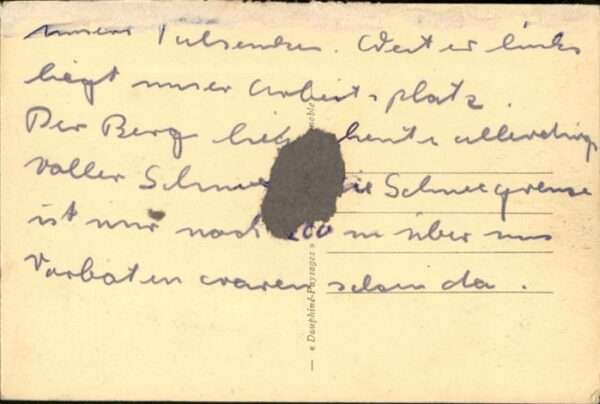 unsere . Weiter links
liegt unser Arbeitsplatz .
Der Berg liegt heute allerdings
voller Schnee. Die Schneegrenze
ist nur noch 200 m über uns
Vorboten waren schon da .
« Dauphiné-Paysages »